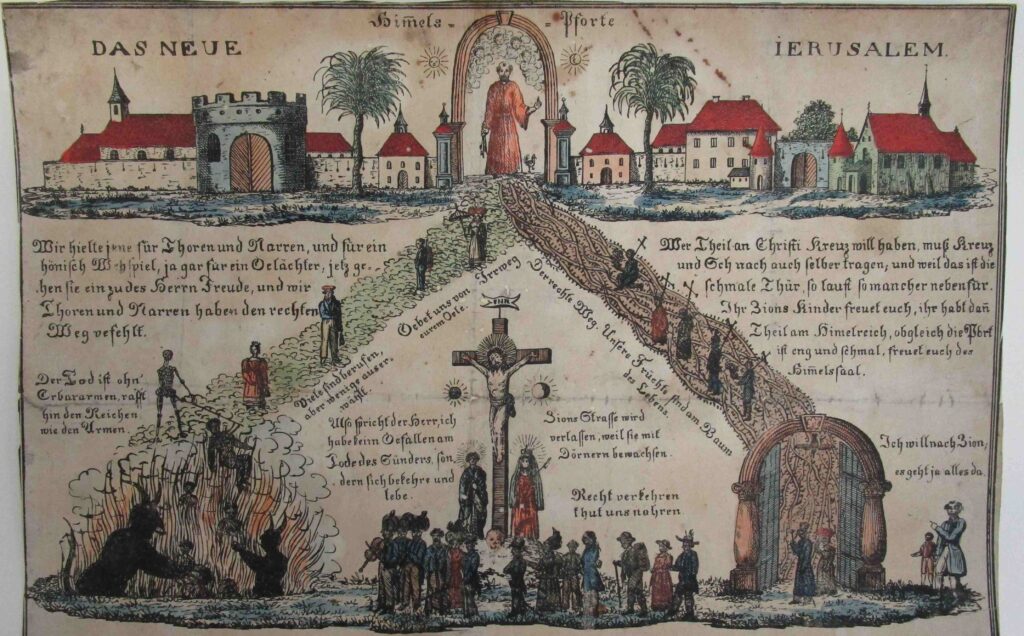 Him̄els - Pforte
DAS NEUE IERUSALEM.
Wir hielte jene für Thoren und Narren, und für ein
hönisch ja gar für ein Gelächter, jetz ge-
hen sie ein zu des Herrn Freude, und wir
Thoren und Narren haben den rechten
Weg vefehlt.
Wer Theil an Christi Kreuz will haben, muß Kreuz
und auch selber tragen, und weil das ist die
schmale Thür, so lauft so mancher neben für.
Ihr Zions Kinder freuet euch, ihr habt dan̄
Theil am Himelreich, obgleich die Pfort
ist eng und schmal, freuet euch des
Him̄elssaal.
Irrweg
Gebet uns von
eurem Oele.
Viele sind berufen,
aber wenige auser-
wählt
Der rechte Weg.
Unsere Früchte sind am Baum
des Lebens.
Der Tod ist ohn'
Erbararmen, raft
hin den Reichen
wie den Armen.
Also spricht der Herr, ich
habe kein Gefallen am
Tode des Sünders, son,
dern sich bekehre und
lebe.
Zions Strasse wird
verlassen, weil sie mit
Dörnern bewachsen.
Recht verkehren
thut uns nohren.
Ich will nach Zion,
es geht ja alles da.